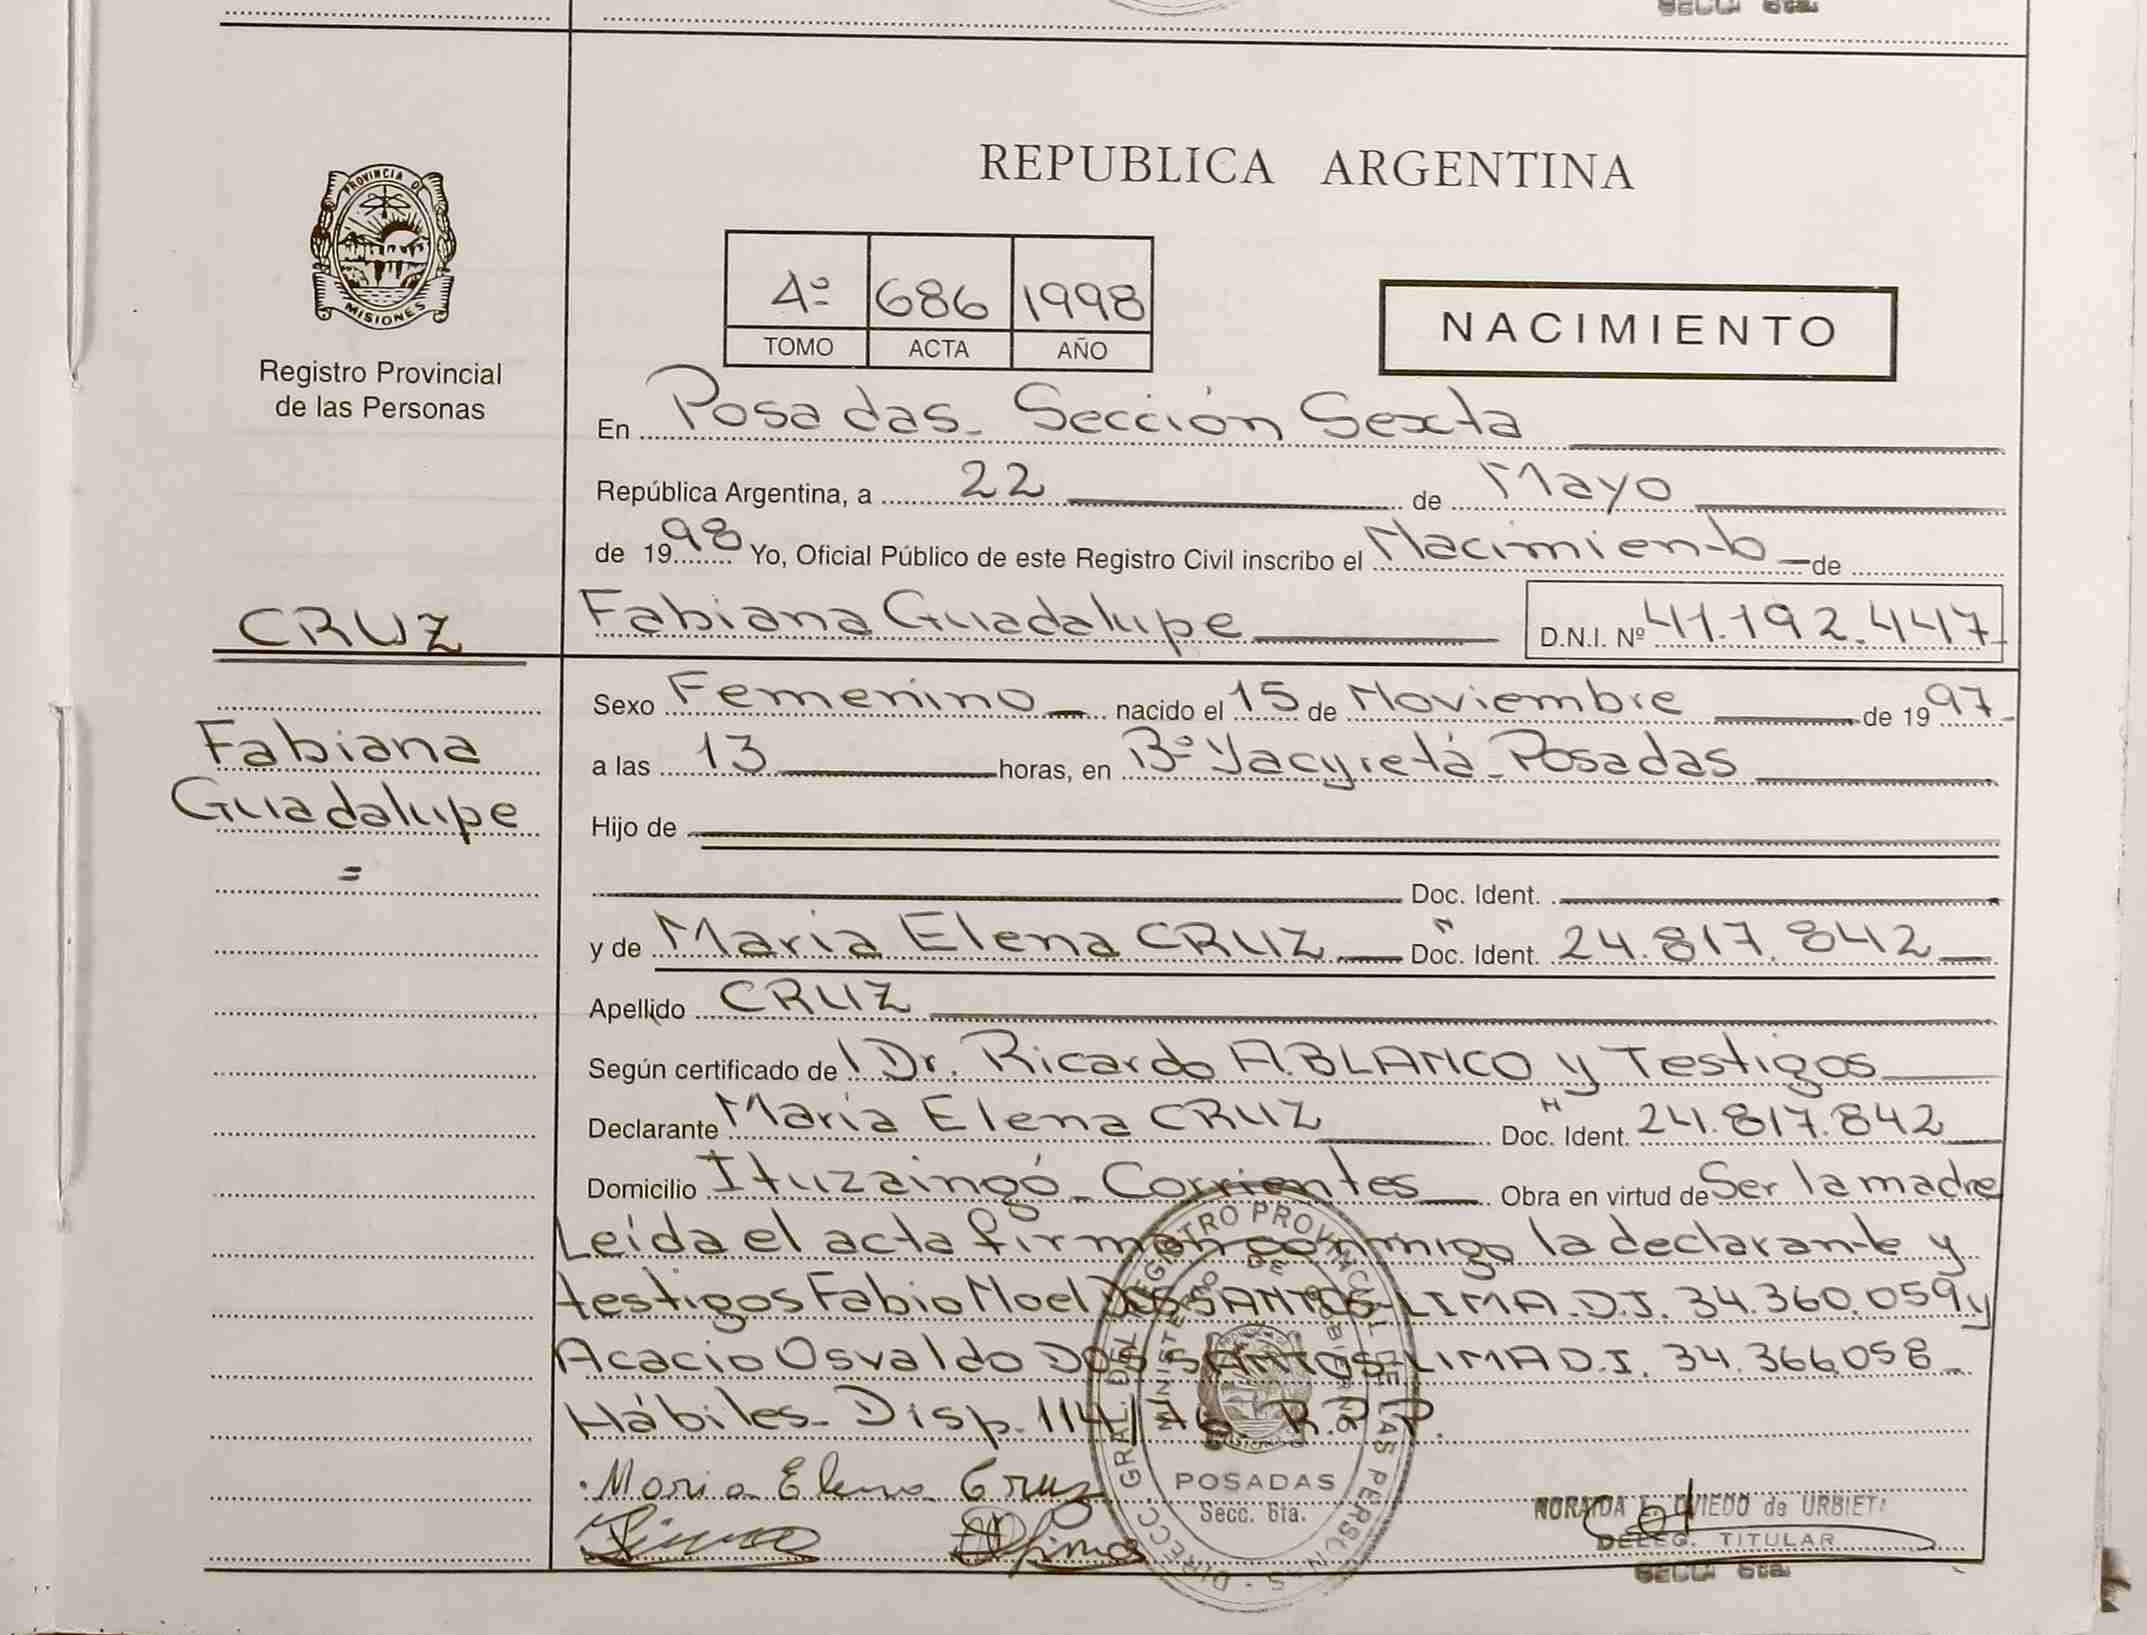 SECC. 6ta.
REPUBLICA ARGENTINA
PROVINCIA DE
MISIONES
Registro Provincial
de las Personas
4º 686 1998
TOMO ACTA AÑO
NACIMIENTO
En Posadas - Sección Sexta
República Argentina, a 22 de Mayo
de 1998 Yo, Oficial Público de este Registro Civil inscribo el Nacimiento de
CRUZ
Fabiana Guadalupe D.N.I. Nº 41.192.447
Fabiana
Guadalupe
=
Sexo Femenino nacido el 15 de Noviembre de 1997
a las 13 horas, en Bº Yacyretá - Posadas
Hijo de
Doc. Ident.
y de Maria Elena CRUZ Doc. Ident. 24.817.842
Apellido CRUZ
Según certificado de Dr. Ricardo A. BLANCO y Testigos
Declarante Maria Elena CRUZ Doc. Ident. 24.817.842
Domicilio Ituzaingó - Corrientes Obra en virtud de Ser la madre
Leída el acta firman conmigo la declarante y
testigos Fabio Noel DOS SANTOS LIMA. D.I. 34.360.059 y
Acacio Osvaldo DOS SANTOS LIMA D.I. 34.366.058
Hábiles - Disp. 114/76. R.P.P.
Maria Elena Cruz
DIRECC. GRAL. DEL REGISTRO PROVINCIAL DE LAS PERSONAS
MINISTERIO DE GOBIERNO
POSADAS
Secc. 6ta.
NORAIDA E. OVIEDO de URBIETA
DELEG. TITULAR
SECC. 6ta.